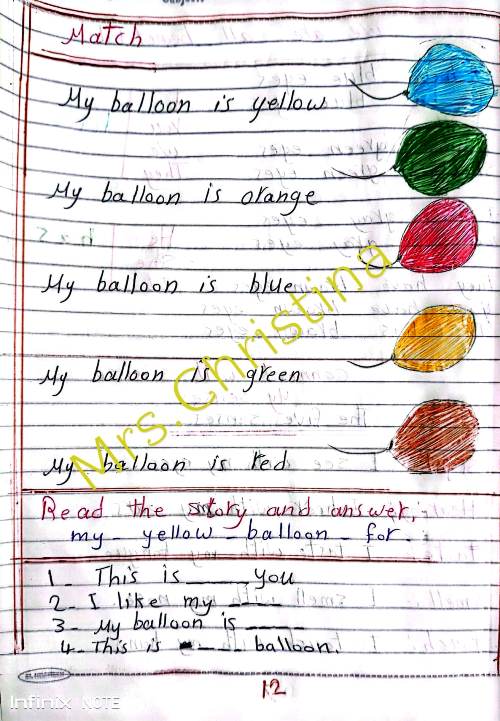 Match
My balloon is yellow
My balloon is orange
My balloon is blue
My balloon is green
My balloon is red
Mrs.Christina
Read the story and answer:
my - yellow - balloon - for.
1- This is ____ you
2- I like my ____
3- My balloon is ____
4- This is ____ balloon.
12
Infinix NOTE